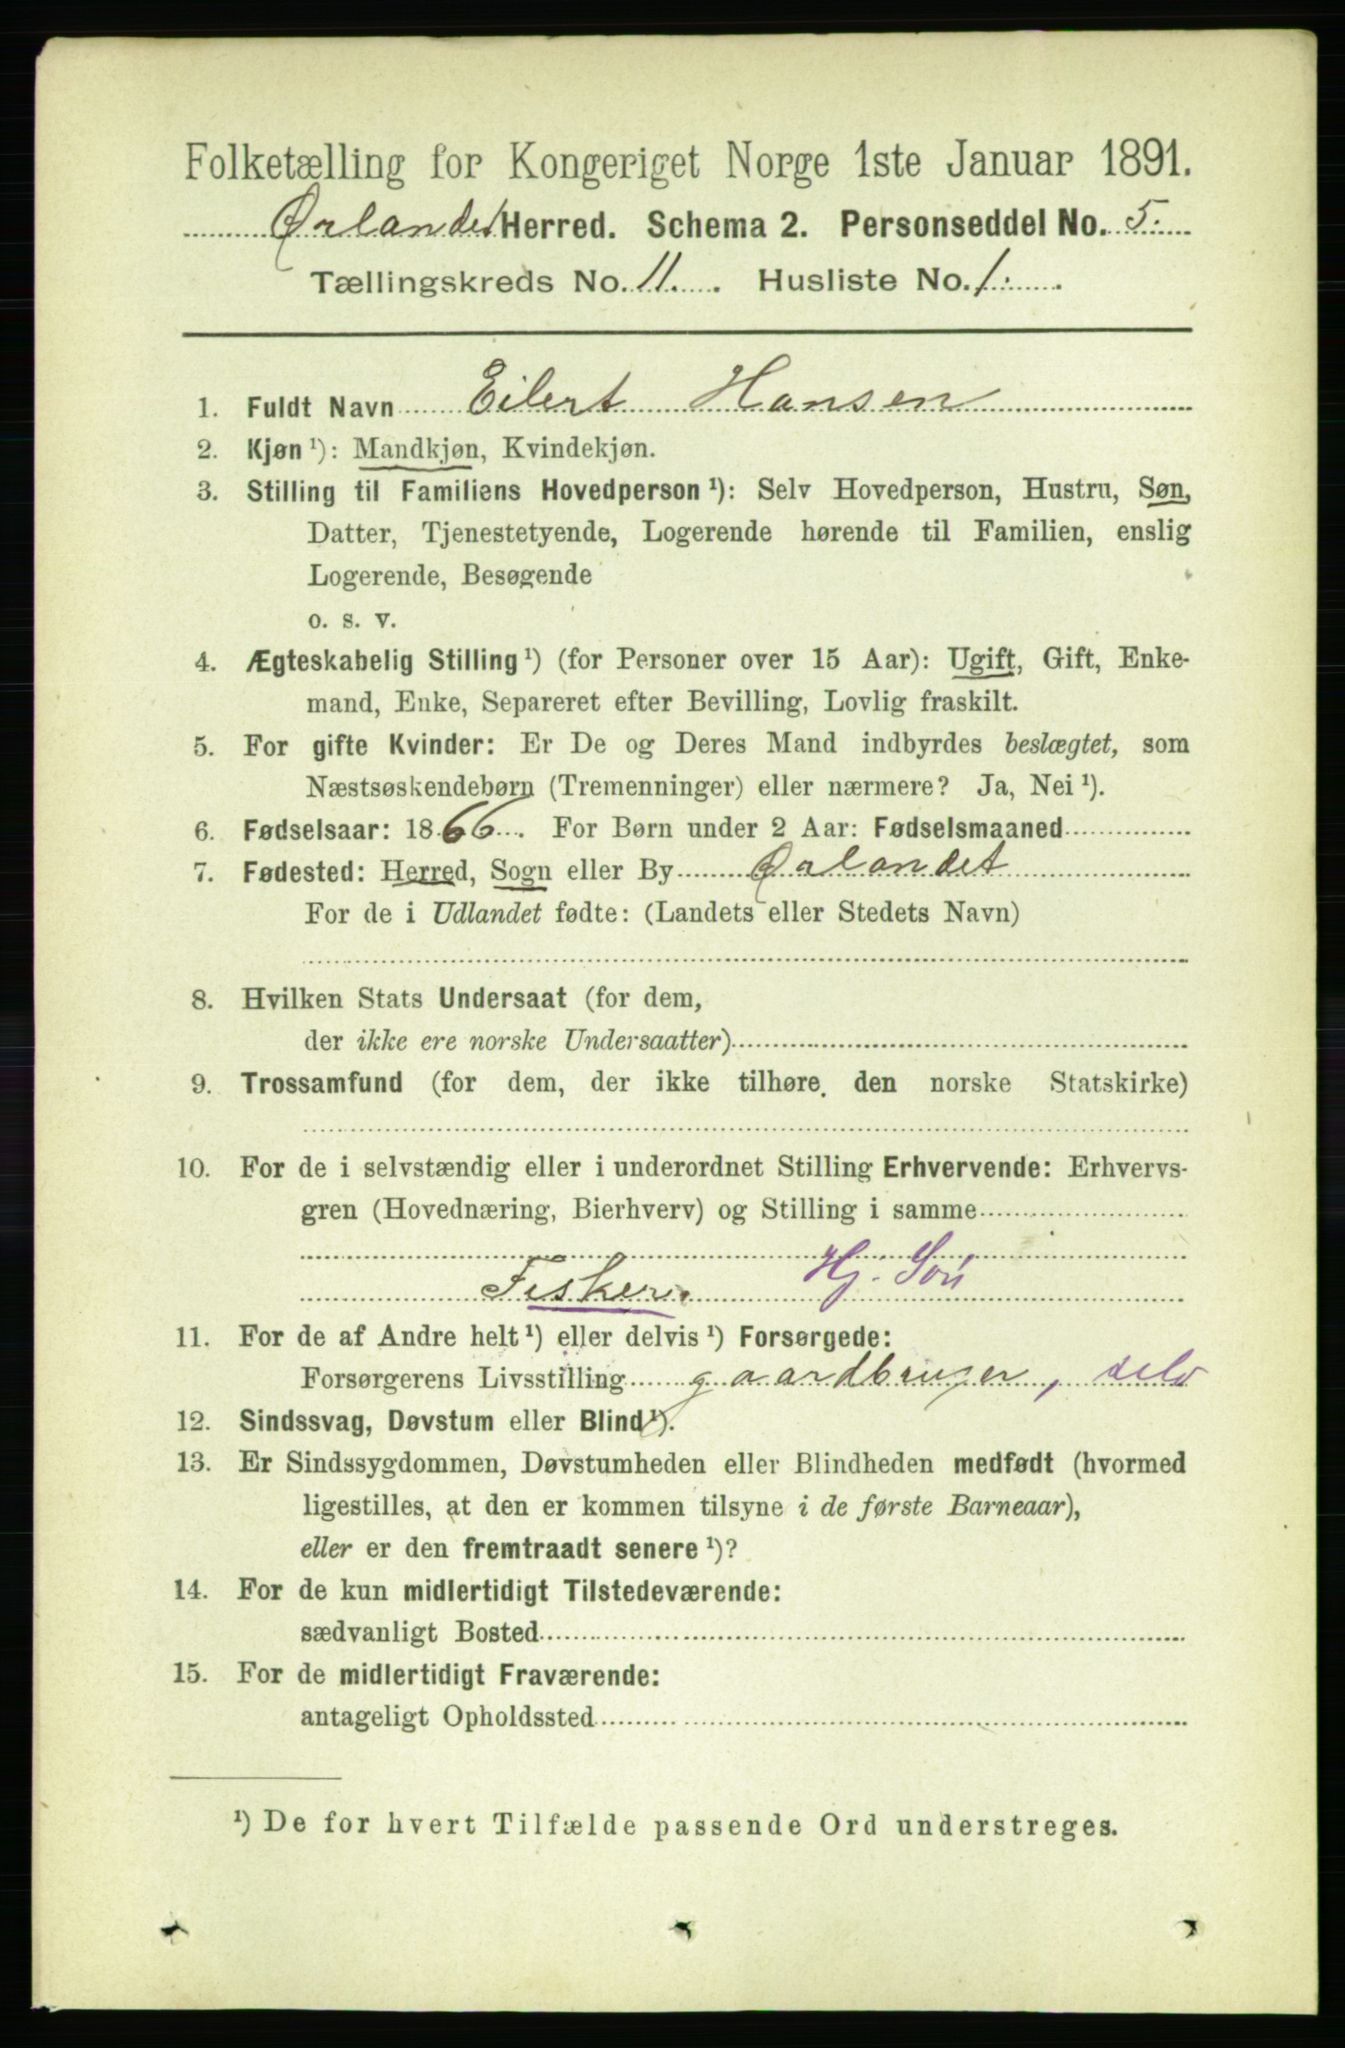 Folketælling for Kongeriget Norge 1ste Januar 1891.
Ørlandet Herred. Schema 2. Personseddel No. 5.
Tællingskreds No. 11. Husliste No. 1.
1. Fuldt Navn Eilert Hansen
2. Kjøn ¹): Mandkjøn, Kvindekjøn.
3. Stilling til Familiens Hovedperson ¹): Selv Hovedperson, Hustru, Søn,
Datter, Tjenestetyende, Logerende hørende til Familien, enslig
Logerende, Besøgende
o. s. v.
4. Ægteskabelig Stilling ¹) (for Personer over 15 Aar): Ugift, Gift, Enke-
mand, Enke, Separeret efter Bevilling, Lovlig fraskilt.
5. For gifte Kvinder: Er De og Deres Mand indbyrdes beslægtet, som
Næstsøskendebørn (Tremenninger) eller nærmere? Ja, Nei ¹).
6. Fødselsaar: 1866. For Børn under 2 Aar: Fødselsmaaned
7. Fødested: Herred, Sogn eller By Ørlandet
For de i Udlandet fødte: (Landets eller Stedets Navn)
8. Hvilken Stats Undersaat (for dem,
der ikke ere norske Undersaatter)
9. Trossamfund (for dem, der ikke tilhøre den norske Statskirke)
10. For de i selvstændig eller i underordnet Stilling Erhvervende: Erhvervs-
gren (Hovednæring, Bierhverv) og Stilling i samme
Fisker. Hj. Søn
11. For de af Andre helt ¹) eller delvis ¹) Forsørgede:
Forsørgerens Livsstilling gaardbruger, selv
12. Sindssvag, Døvstum eller Blind ¹).
13. Er Sindssygdommen, Døvstumheden eller Blindheden medfødt (hvormed
ligestilles, at den er kommen tilsyne i de første Barneaar),
eller er den fremtraadt senere ¹)?
14. For de kun midlertidigt Tilstedeværende:
sædvanligt Bosted
15. For de midlertidigt Fraværende:
antageligt Opholdssted
¹) De for hvert Tilfælde passende Ord understreges.